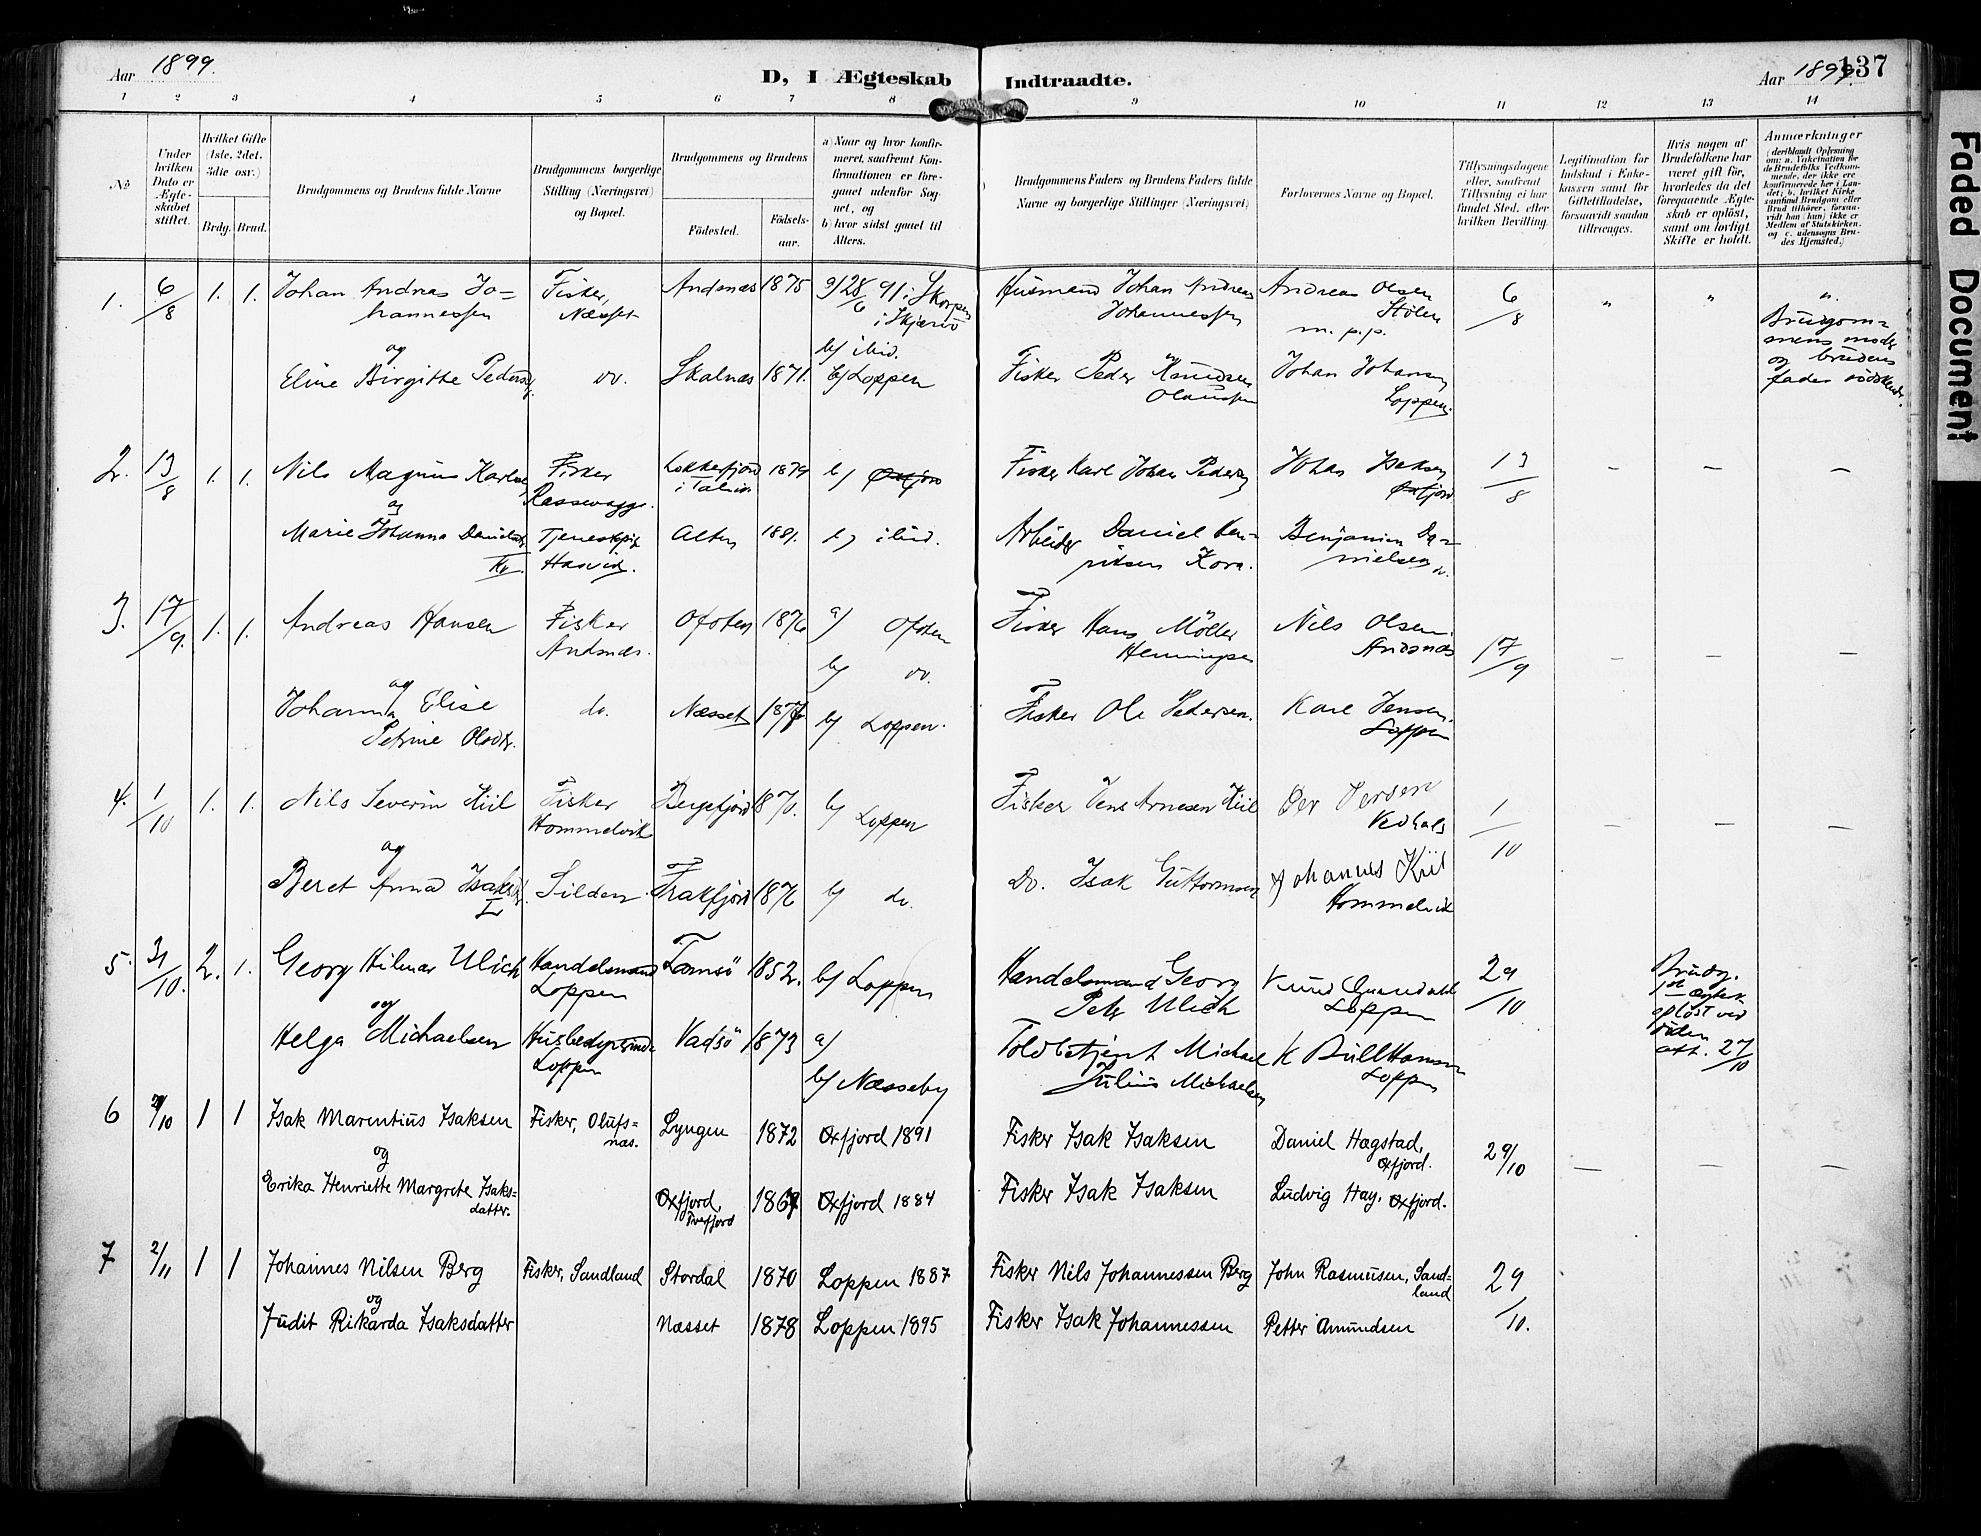 Aar 1899.
D, I Ægteskab Indtraadte.
Aar 1899.
137
Faded Document
1 2 3 4 5 6 7 8 9 10 11 12 13 14
No
Under hvilken Dato er Ægteskabet stiftet.
Hvilket Gifte (1ste, 2det, 3die osv.)
Brdg. Brud.
Brudgommens og Brudens fulde Navne
Brudgommens borgerlige Stilling (Næringsvei) og Bopæl.
Brudgommens og Brudens
Födested.
Födselsaar.
a) Naar og hvor konfirmeret, saafremt Konfirmationen er foregaaet udenfor Sognet, og
b) hvor sidst gaaet til Alters.
Brudgommens Faders og Brudens Faders fulde Navne og borgerlige Stillinger (Næringsvei)
Forlovernes Navne og Bopæl.
Tillysningsdagene eller, saafremt Tillysning ei har fundet Sted, efter hvilken Bevilling.
Legitimation for Indskud i Enkekassen samt for Giftetilladelse, forsaavidt saadan tiltrænges.
Hvis nogen af Brudefolkene har været gift för, hvorledes da det foregaaende Ægteskab er oplöst, samt om lovligt Skifte er holdt.
Anmærkninger
(deriblandt Oplysning om: a. Vakcination for de Brudefolks Vedkommende, der ikke ere konfirmerede her i Landet; b. hvilket Kirkesamfund Brudgom eller Brud tilhörer, forsaavidt han (hun) ikke er Medlem af Statskirken, og c. udensogns Brudes Hjemsted.)
1. 6/8 1. 1. Johan Andreas Jo=
hannessen
Fisker, Næsset
Andsnæs 1875
a) 28/6 91 i Skorpen
i Skjærvö
b) ibid.
Husmand Johan Andreas
Johannessen
Andreas Olsen
Stölen
m. p. p.
6/8 " "
Brudgom=
mens moder
og brudens
fader södskende.
og
Eline Birgitte Pedersd. do. Skalnæs 1871. b) Loppen
Fisker Peder Knudsen
Olaussen
Johan Johansen
Loppen.
2. 13/8 1. 1. Nils Magnus Karlsen
Fisker
1879 b) Öxfjord
Fisker Karl Johan Pedersen
Johan Isaksen
Öxfjord
13/8 — — —
og
Marie Johanna Danielsdtr.
Tjenestepige
Hasvik.
Alten 1881. b) ibid.
Arbeider Daniel Hen=
riksen
Benjamin Da=
nielsen
3. 17/9. 1. 1. Andreas Hansen
Fisker
Andsnæs.
Ofoten 1876 a) Ofoten
b) do.
Fisker Hans Möller
Henningsen
Nils Olsen
Andsnæs
17/9 — — —
og
Johanna Elise
Petrine Olsdtr.
do. Næsset 187 b) Loppen.
Fisker Ole Pedersen.
Karl Jensen.
Loppen
4. 1/10 1. 1. Nils Severin Kiil
Fisker
Hommelvik
Bergsfjord 1870. b) Loppen
Fisker Jens Arnesen Kiil
Per Persen
1/10 — — —
og
Beret Anna Isaksdtr. Silden 1876 b) do.
Do. Isak Guttormsen
Johannes Kiil
Hommelvik
5. 31/10. 2. 1. Georg Hilmar Ulich
Handelsmand
Loppen
Tamsö 1852. b) Loppen
Handelsmand Georg
Peter Ulich
Knud
Loppen
29/10
Brudg.
1ste ægtesk.
oplöst ved
döden
att. 27/10
og
Helga Michaelsen
Husbestyrerinde
Loppen
Vadsö 1873 a)
b) Næsseby
Toldbetjent Michael
Julius Michaelsen
K Bull Hansen
Loppen
6 /10 1 1 Isak Marentius Isaksen
Fisker, Olufs=
næs.
Lyngen 1872 Oxfjord 1891
Fisker Isak Isaksen
Daniel Hagstad,
Oxfjord.
29/10 — — —
og
Erika Henriette Margrete Isaks=
datter.
Oxfjord,
Tverfjord
186 Oxfjord 1884
Fisker Isak Isaksen
Ludvig Hay, Oxfjord.
7 2/11 1 1 Johannes Nilsen Berg
Fisker, Sandland Stordal 1870 Loppen 1887
Fisker Nils Johannessen Berg
John Rasmusen, Sand=
land
29/10.
og
Judit Rikarda Isaksdatter
Næsset 1878 Loppen 1895
Fisker Isak Johannessen
Petter Amundsen